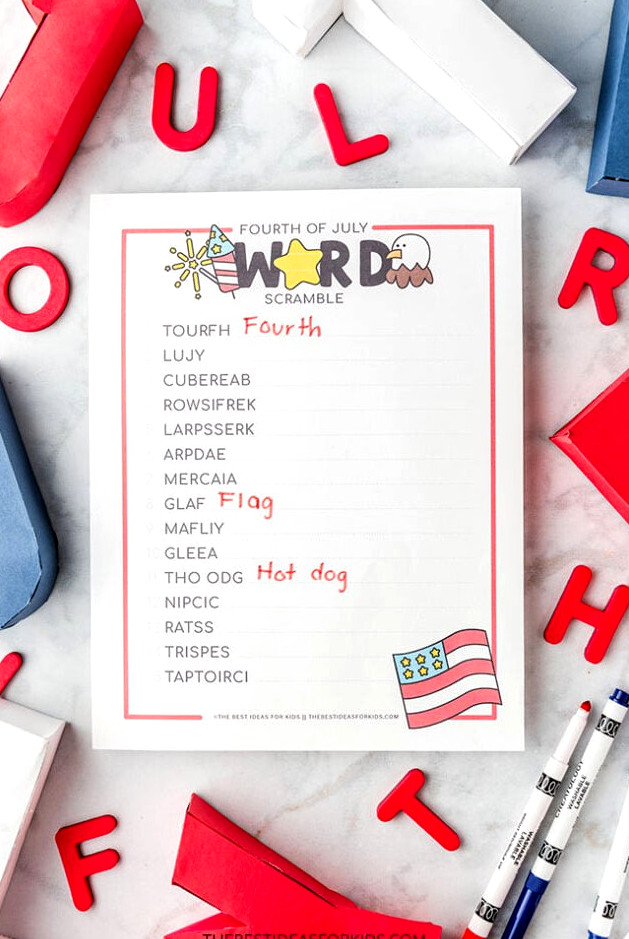 U
L
O
R
FOURTH OF JULY
WORD
SCRAMBLE
TOURFH Fourth
LUJY
CUBEREAB
ROWSIFREK
LARPSSERK
ARPDAE
MERCAIA
GLAF Flag
MAFLIY
GLEEA
THO ODG Hot dog
NIPCIC
RATSS
TRISPES
TAPTOIRCI
©THE BEST IDEAS FOR KIDS || THEBESTIDEASFORKIDS.COM
H
T
F
WASHABLE
LAVABLE
CREATOLOGY
WASHABLE
LAVABLE
THEBESTIDEASFORKIDS.COM